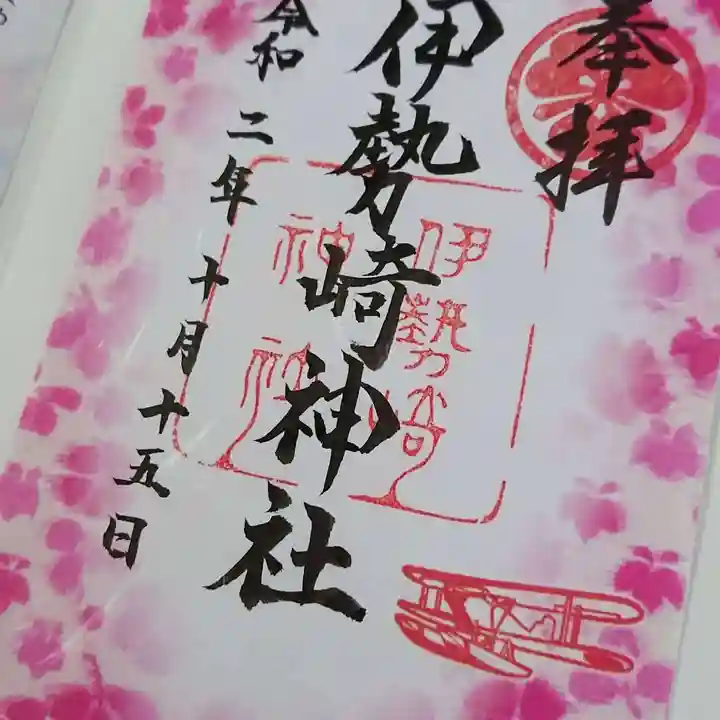 奉拝
伊勢崎神社
伊勢崎
神社
令和二年十月十五日